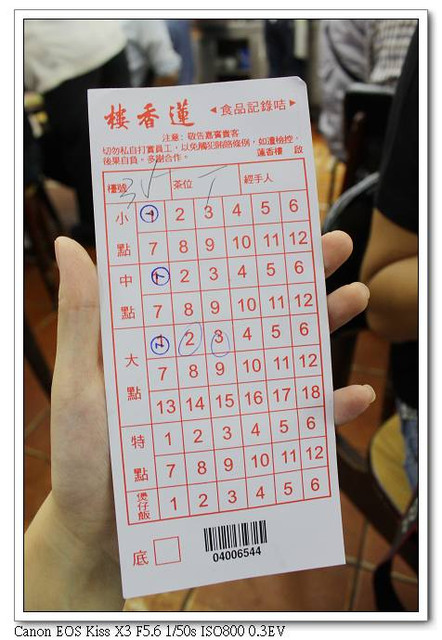 樓香蓮
◀食品記錄咭▶
注意：敬告嘉賓貴客
切勿私自打賞員工，以免觸犯賄賂條例，如遭檢控，
後果自負。多謝合作。 蓮香樓 啟
檯號 茶位 經手人
小點
1 2 3 4 5 6
7 8 9 10 11 12
中點
1 2 3 4 5 6
7 8 9 10 11 12
大點
1 2 3 4 5 6
7 8 9 10 11 12
13 14 15 16 17 18
特點
1 2 3 4 5 6
7 8 9 10 11 12
煲仔飯
1 2 3 4 5 6
底
04006544
Canon EOS Kiss X3 F5.6 1/50s ISO800 0.3EV